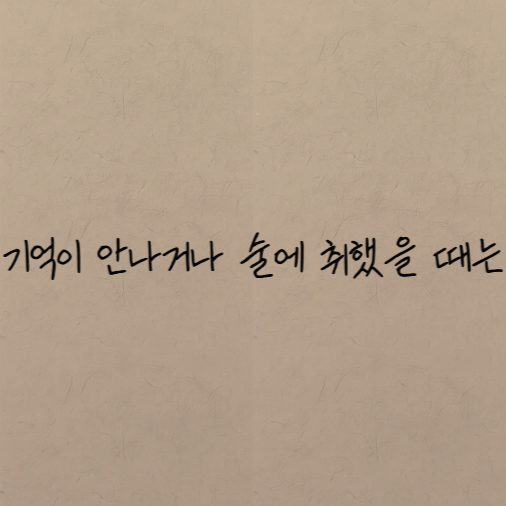 기억이 안나거나 술에 취했을 때는